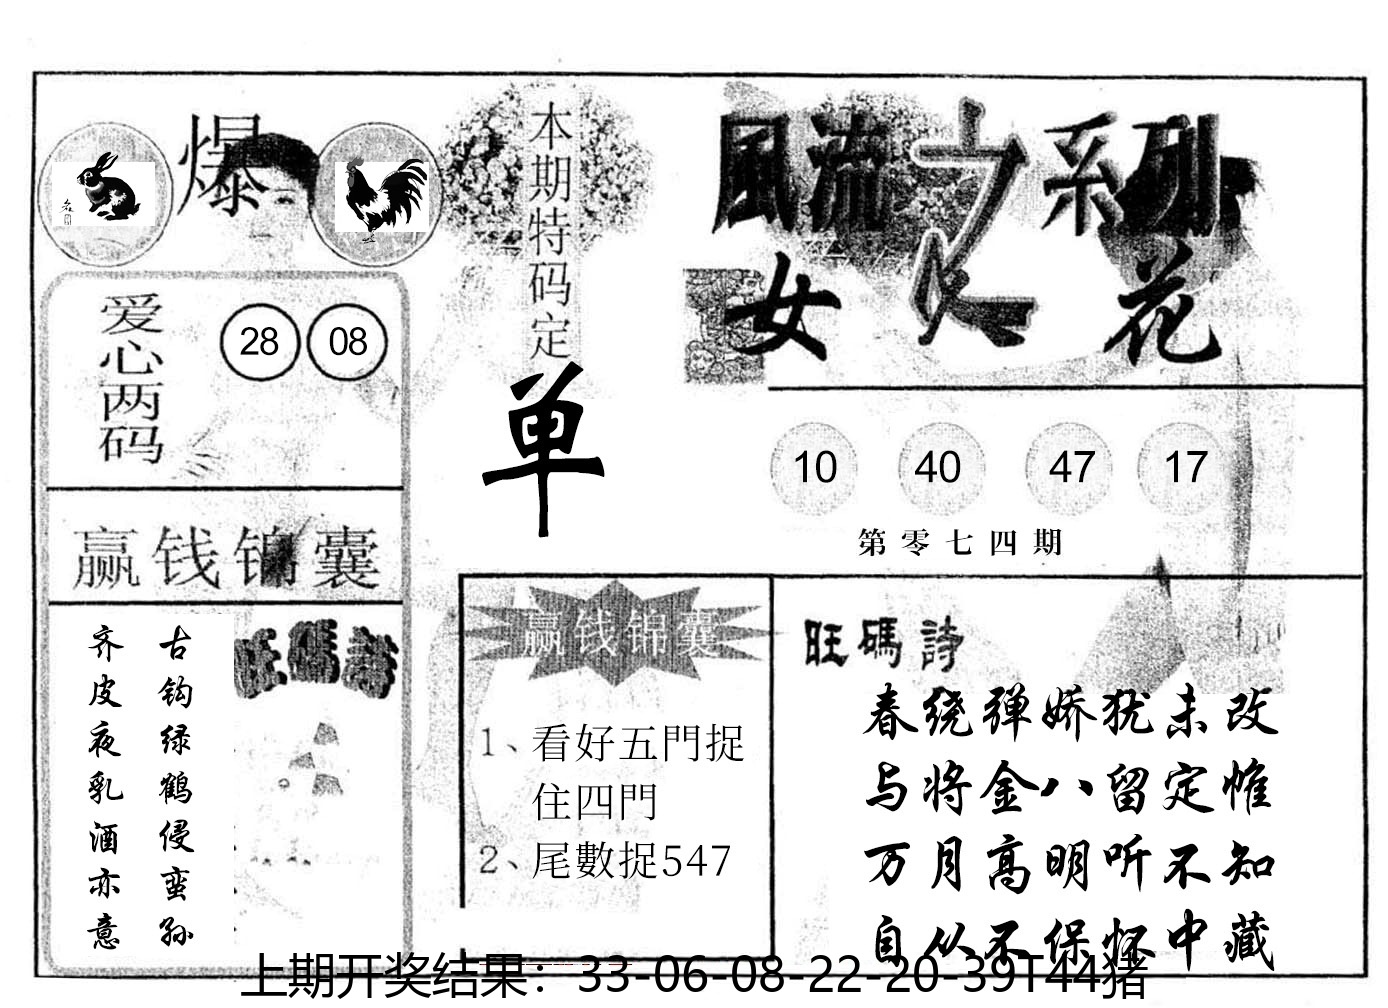 爆
本期特码定
单
風流之系列
女人花
爱心两码
28 08
10 40 47 17
第零七四期
赢钱锦囊
古钩绿鹤侵蛮孙
齐皮夜乳酒亦意
旺碼詩
赢钱锦囊
1、看好五門捉
住四門
2、尾數捉547
旺碼詩
春绕弹娇犹未改
与将金八留定惟
万月高明听不知
自从不保怀中藏
上期开奖结果：33-06-08-22-20-39T44猪